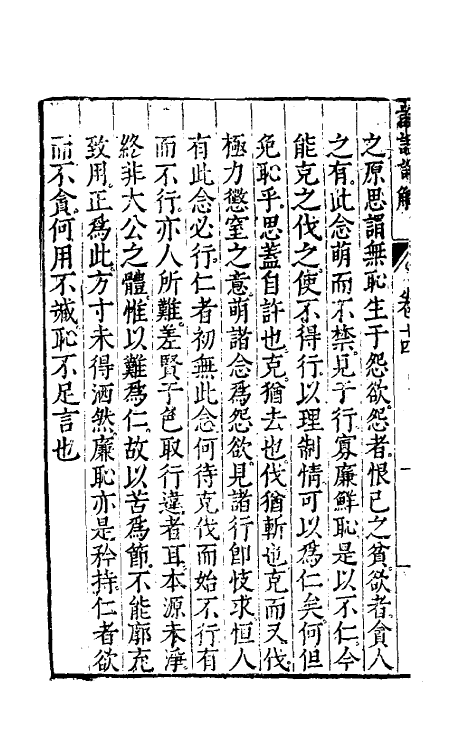 論語詳解　卷十四
之原思謂無恥生于怨欲怨者恨已之貧欲者貪人
之有此念萌而不禁見于行寡廉鮮恥是以不仁今
能克之伐之使不得行以理制情可以爲仁矣何但
免恥乎思蓋自許也克猶去也伐猶斬也克而又伐
極力懲窒之意萌諸念爲怨欲見諸行卽忮求恒人
有此念必行仁者初無此念何待克伐而始不行有
而不行亦人所難差賢于色取行違者耳本源未淨
終非大公之體惟以難爲仁故以苦爲節不能廓充
致用正爲此方寸未得洒然廉恥亦是矜持仁者欲
而不貪何用不臧恥不足言也